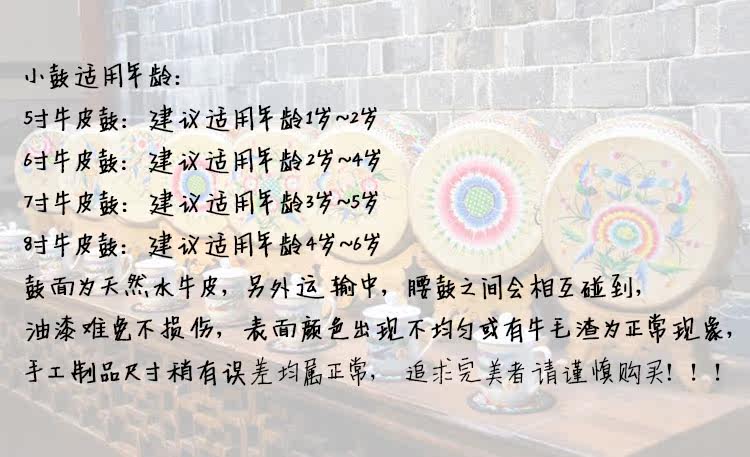 小鼓适用年龄：
5寸牛皮鼓：建议适用年龄1岁~2岁
6寸牛皮鼓：建议适用年龄2岁~4岁
7寸牛皮鼓：建议适用年龄3岁~5岁
8寸牛皮鼓：建议适用年龄4岁~6岁
鼓面为天然水牛皮，另外运输中，腰鼓之间会相互碰到，
油漆难免不损伤，表面颜色出现不均匀或有牛毛渣为正常现象，
手工制品尺寸稍有误差均属正常，追求完美者请谨慎购买！！！